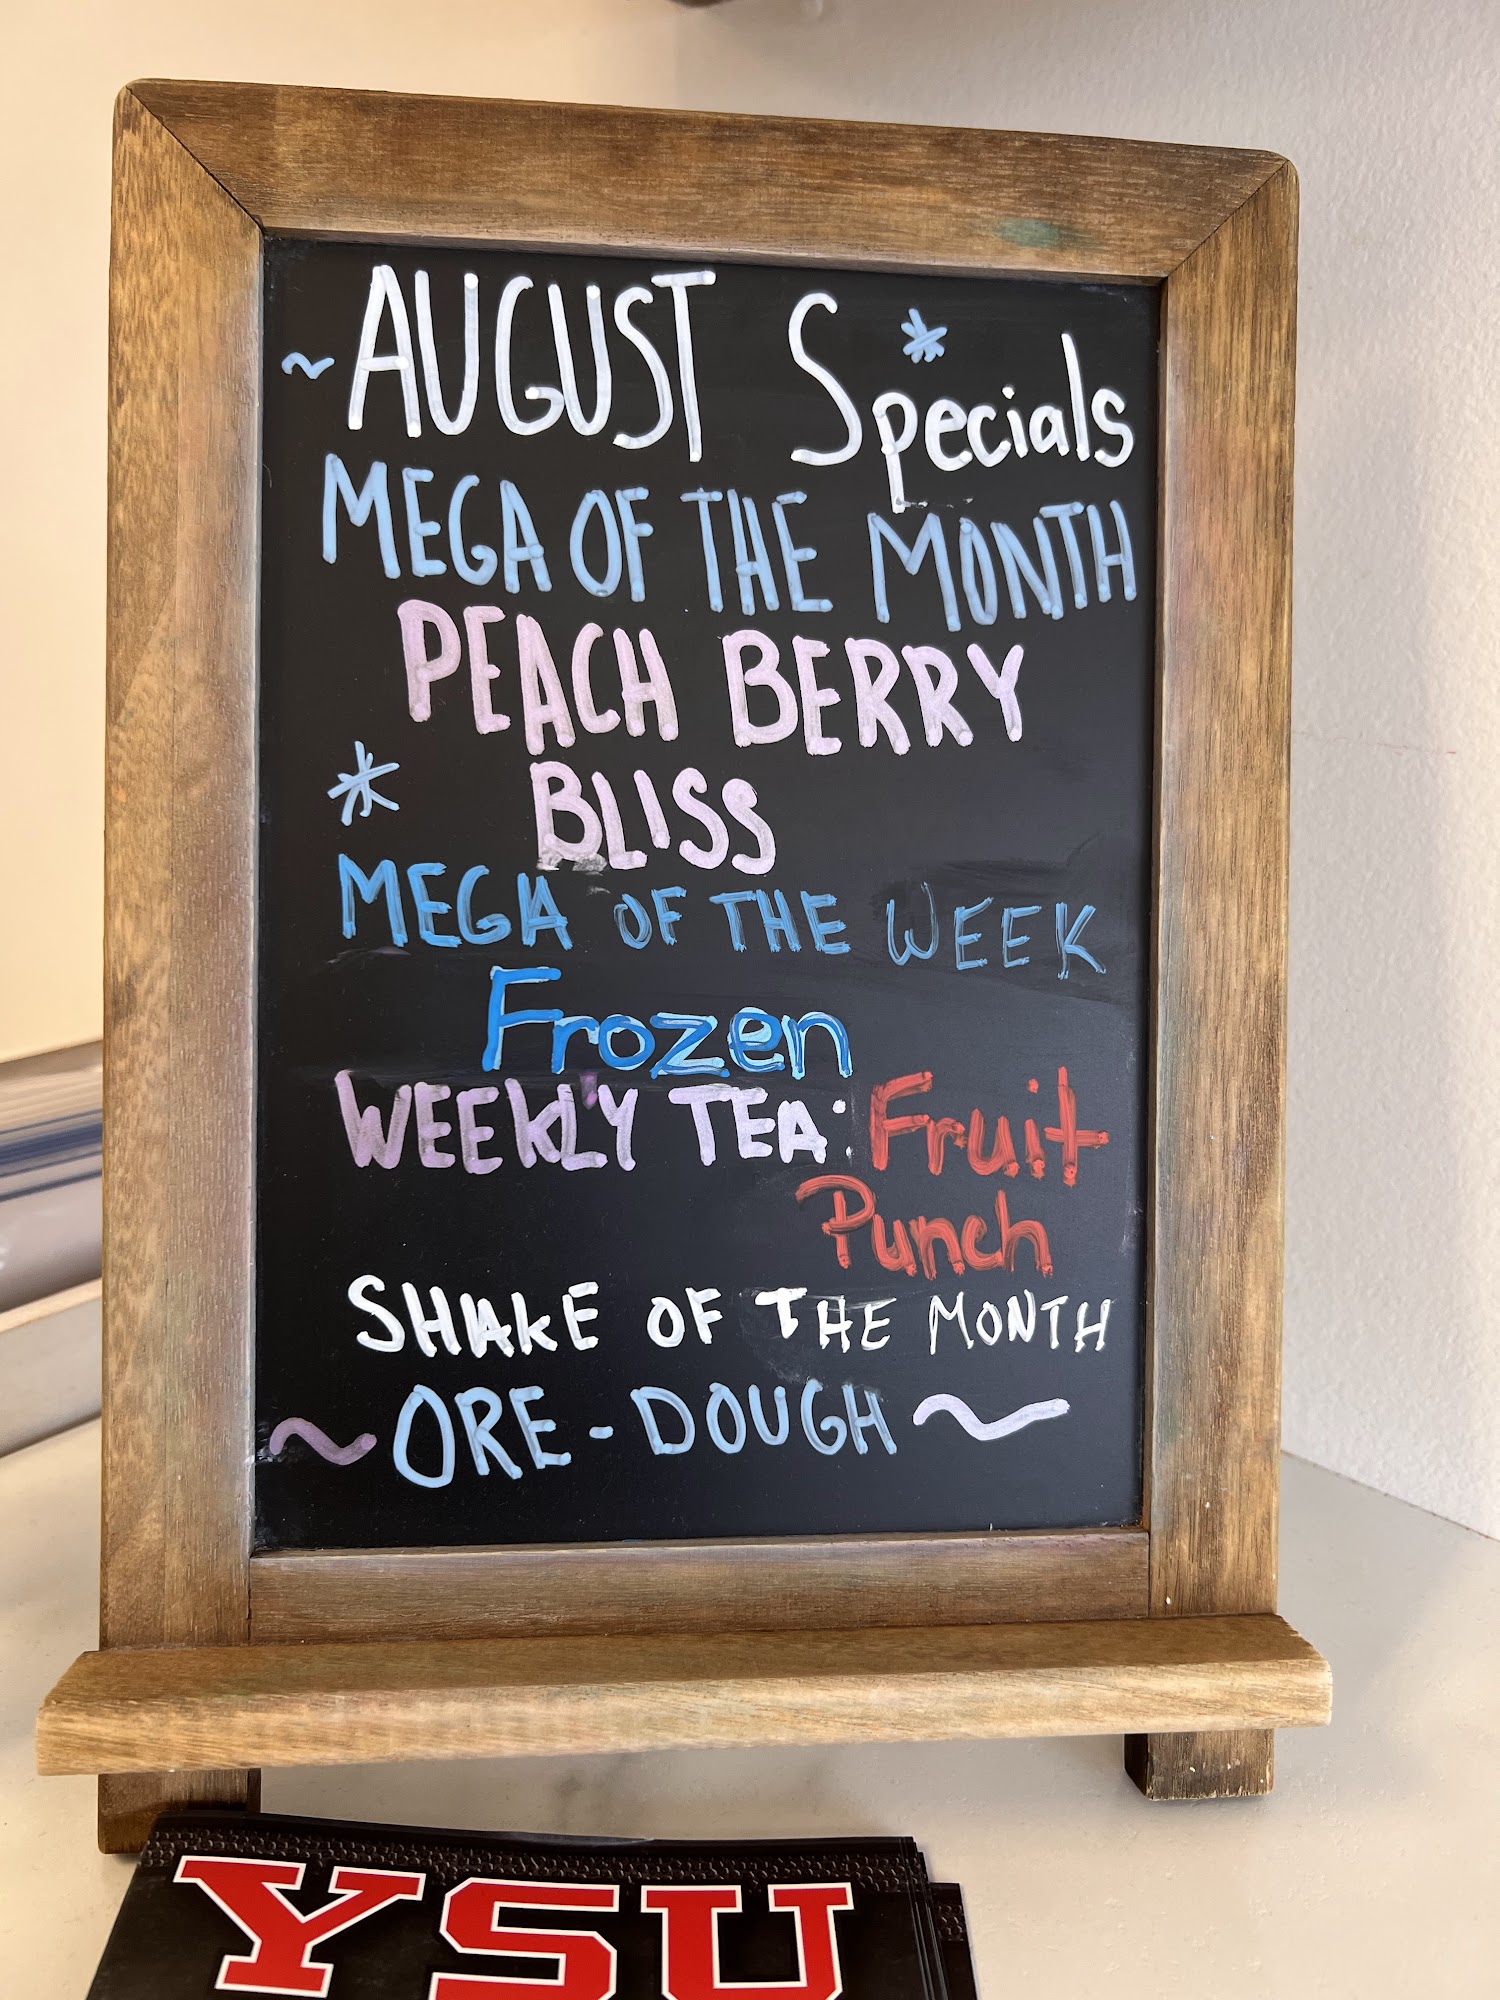 ~AUGUST Specials
MEGA OF THE MONTH
PEACH BERRY
* BLISS
MEGA OF THE WEEK
Frozen
WEEKLY TEA: Fruit
Punch
SHAKE OF THE MONTH
~ORE-DOUGH~
YSU